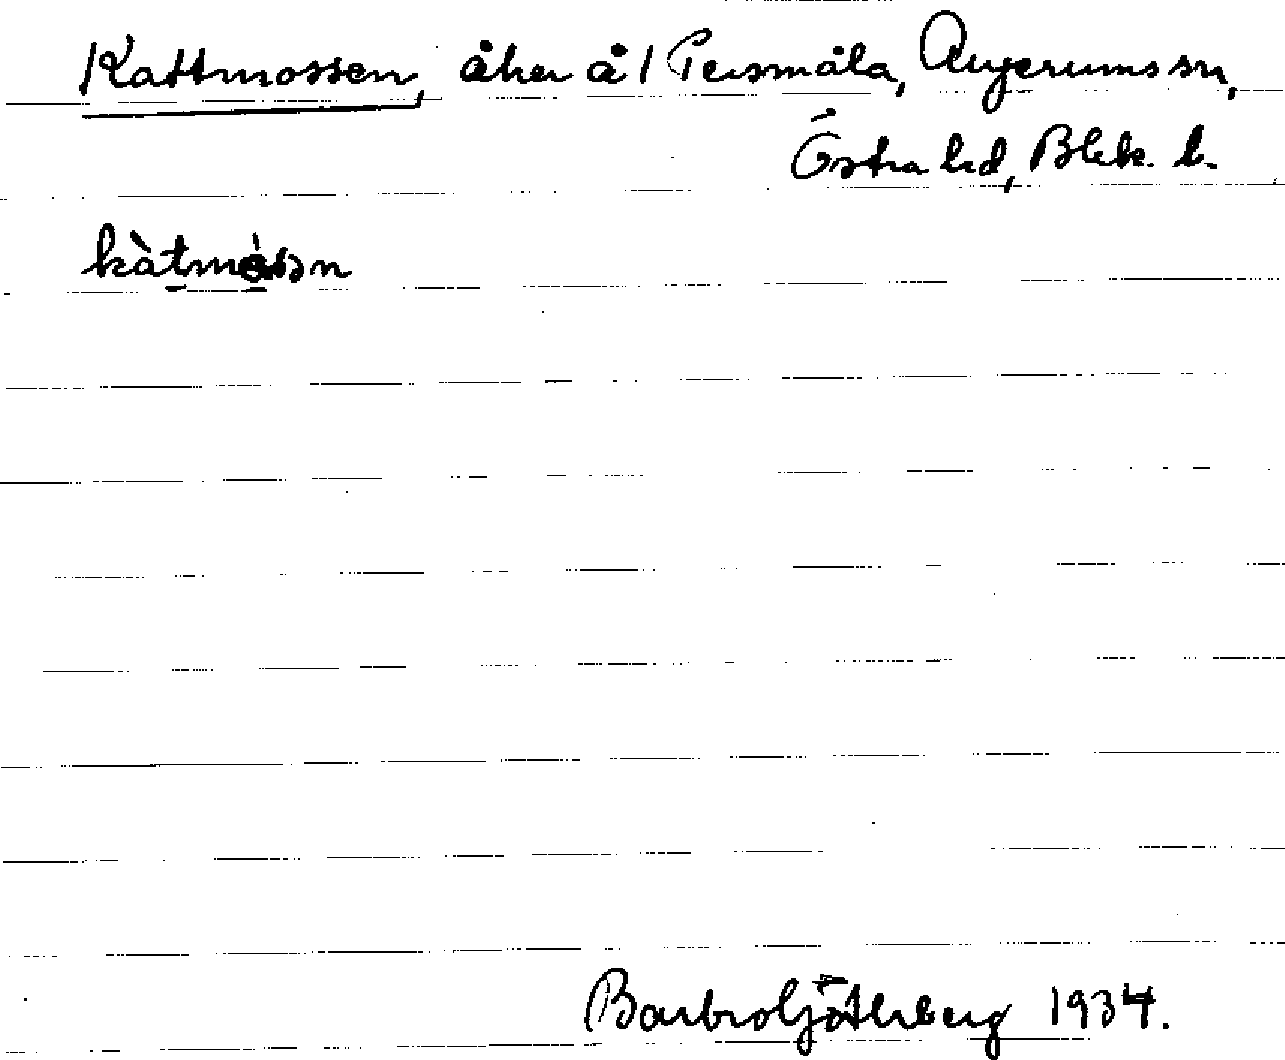 Kattmossen, åker å 1 Persmåla, Augerums sn,
Östra hd, Blek. l.
kàtmòsən
Barbro Götherberg 1934.